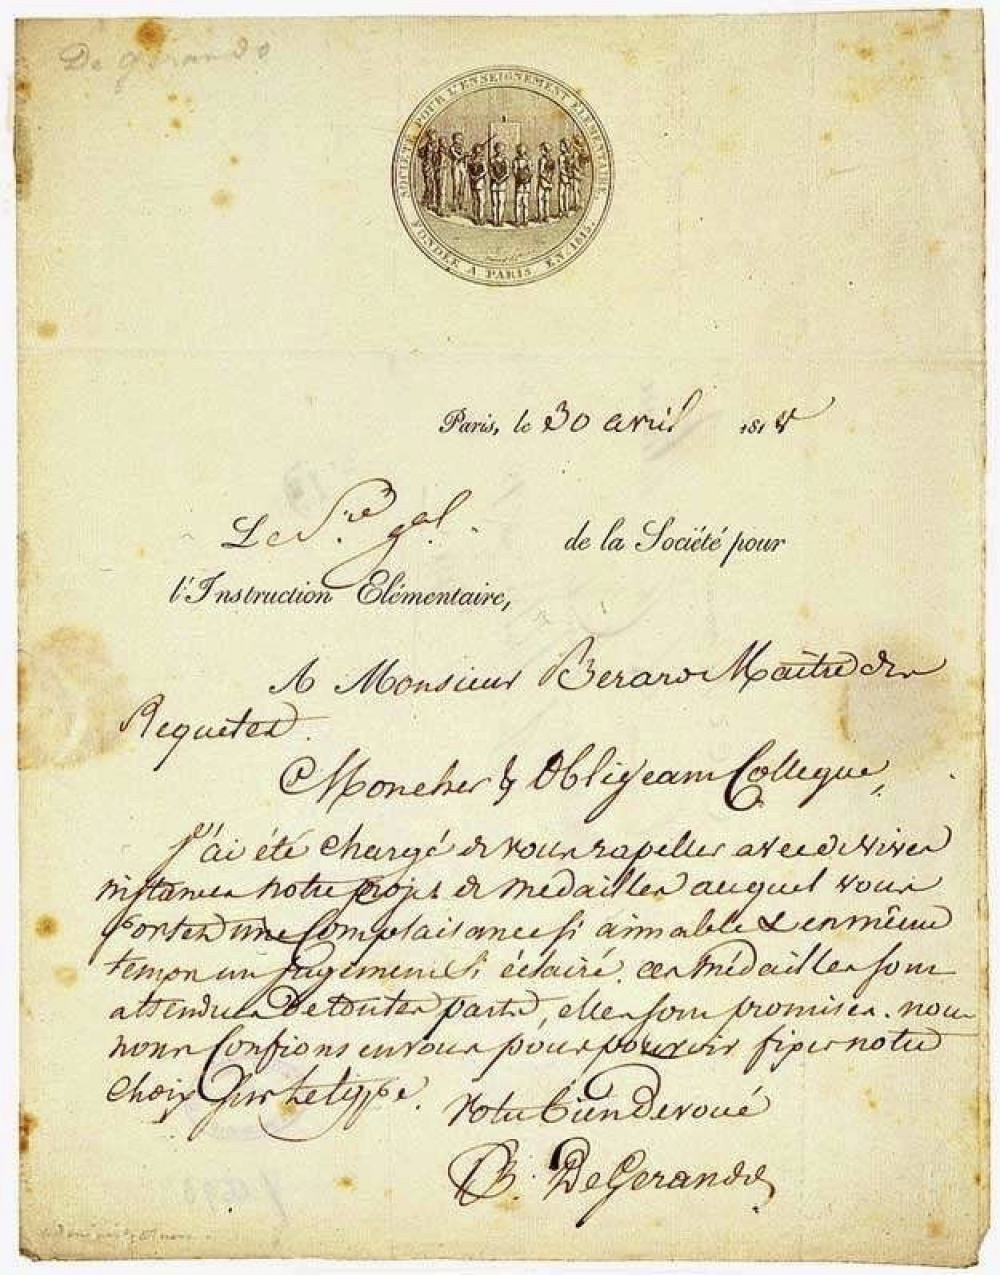 De Gerando
SOCIÉTÉ POUR L'ENSEIGNEMENT ÉLÉMENTAIRE
FONDÉE A PARIS EN 1815.
Paris, le 30 avril 1818
Le S.re gal. de la Société pour
l'Instruction Elémentaire,
A Monsieur Berard Maître des
Requetes.
Mon cher & Obligeant Collegue,
J'ai été chargé de vous rapeller avec de vives
instances notre projet de medailles auquel vous
portez une Complaisance si aimable & en même
temps un jugement si éclairé. ces médailles sont
attendues De toutes parts, elles sont promises. nous
nous Confions en vous pour pouvoir fixer notre
choix sur le type.
votre bien Devoué
B. De Gerando